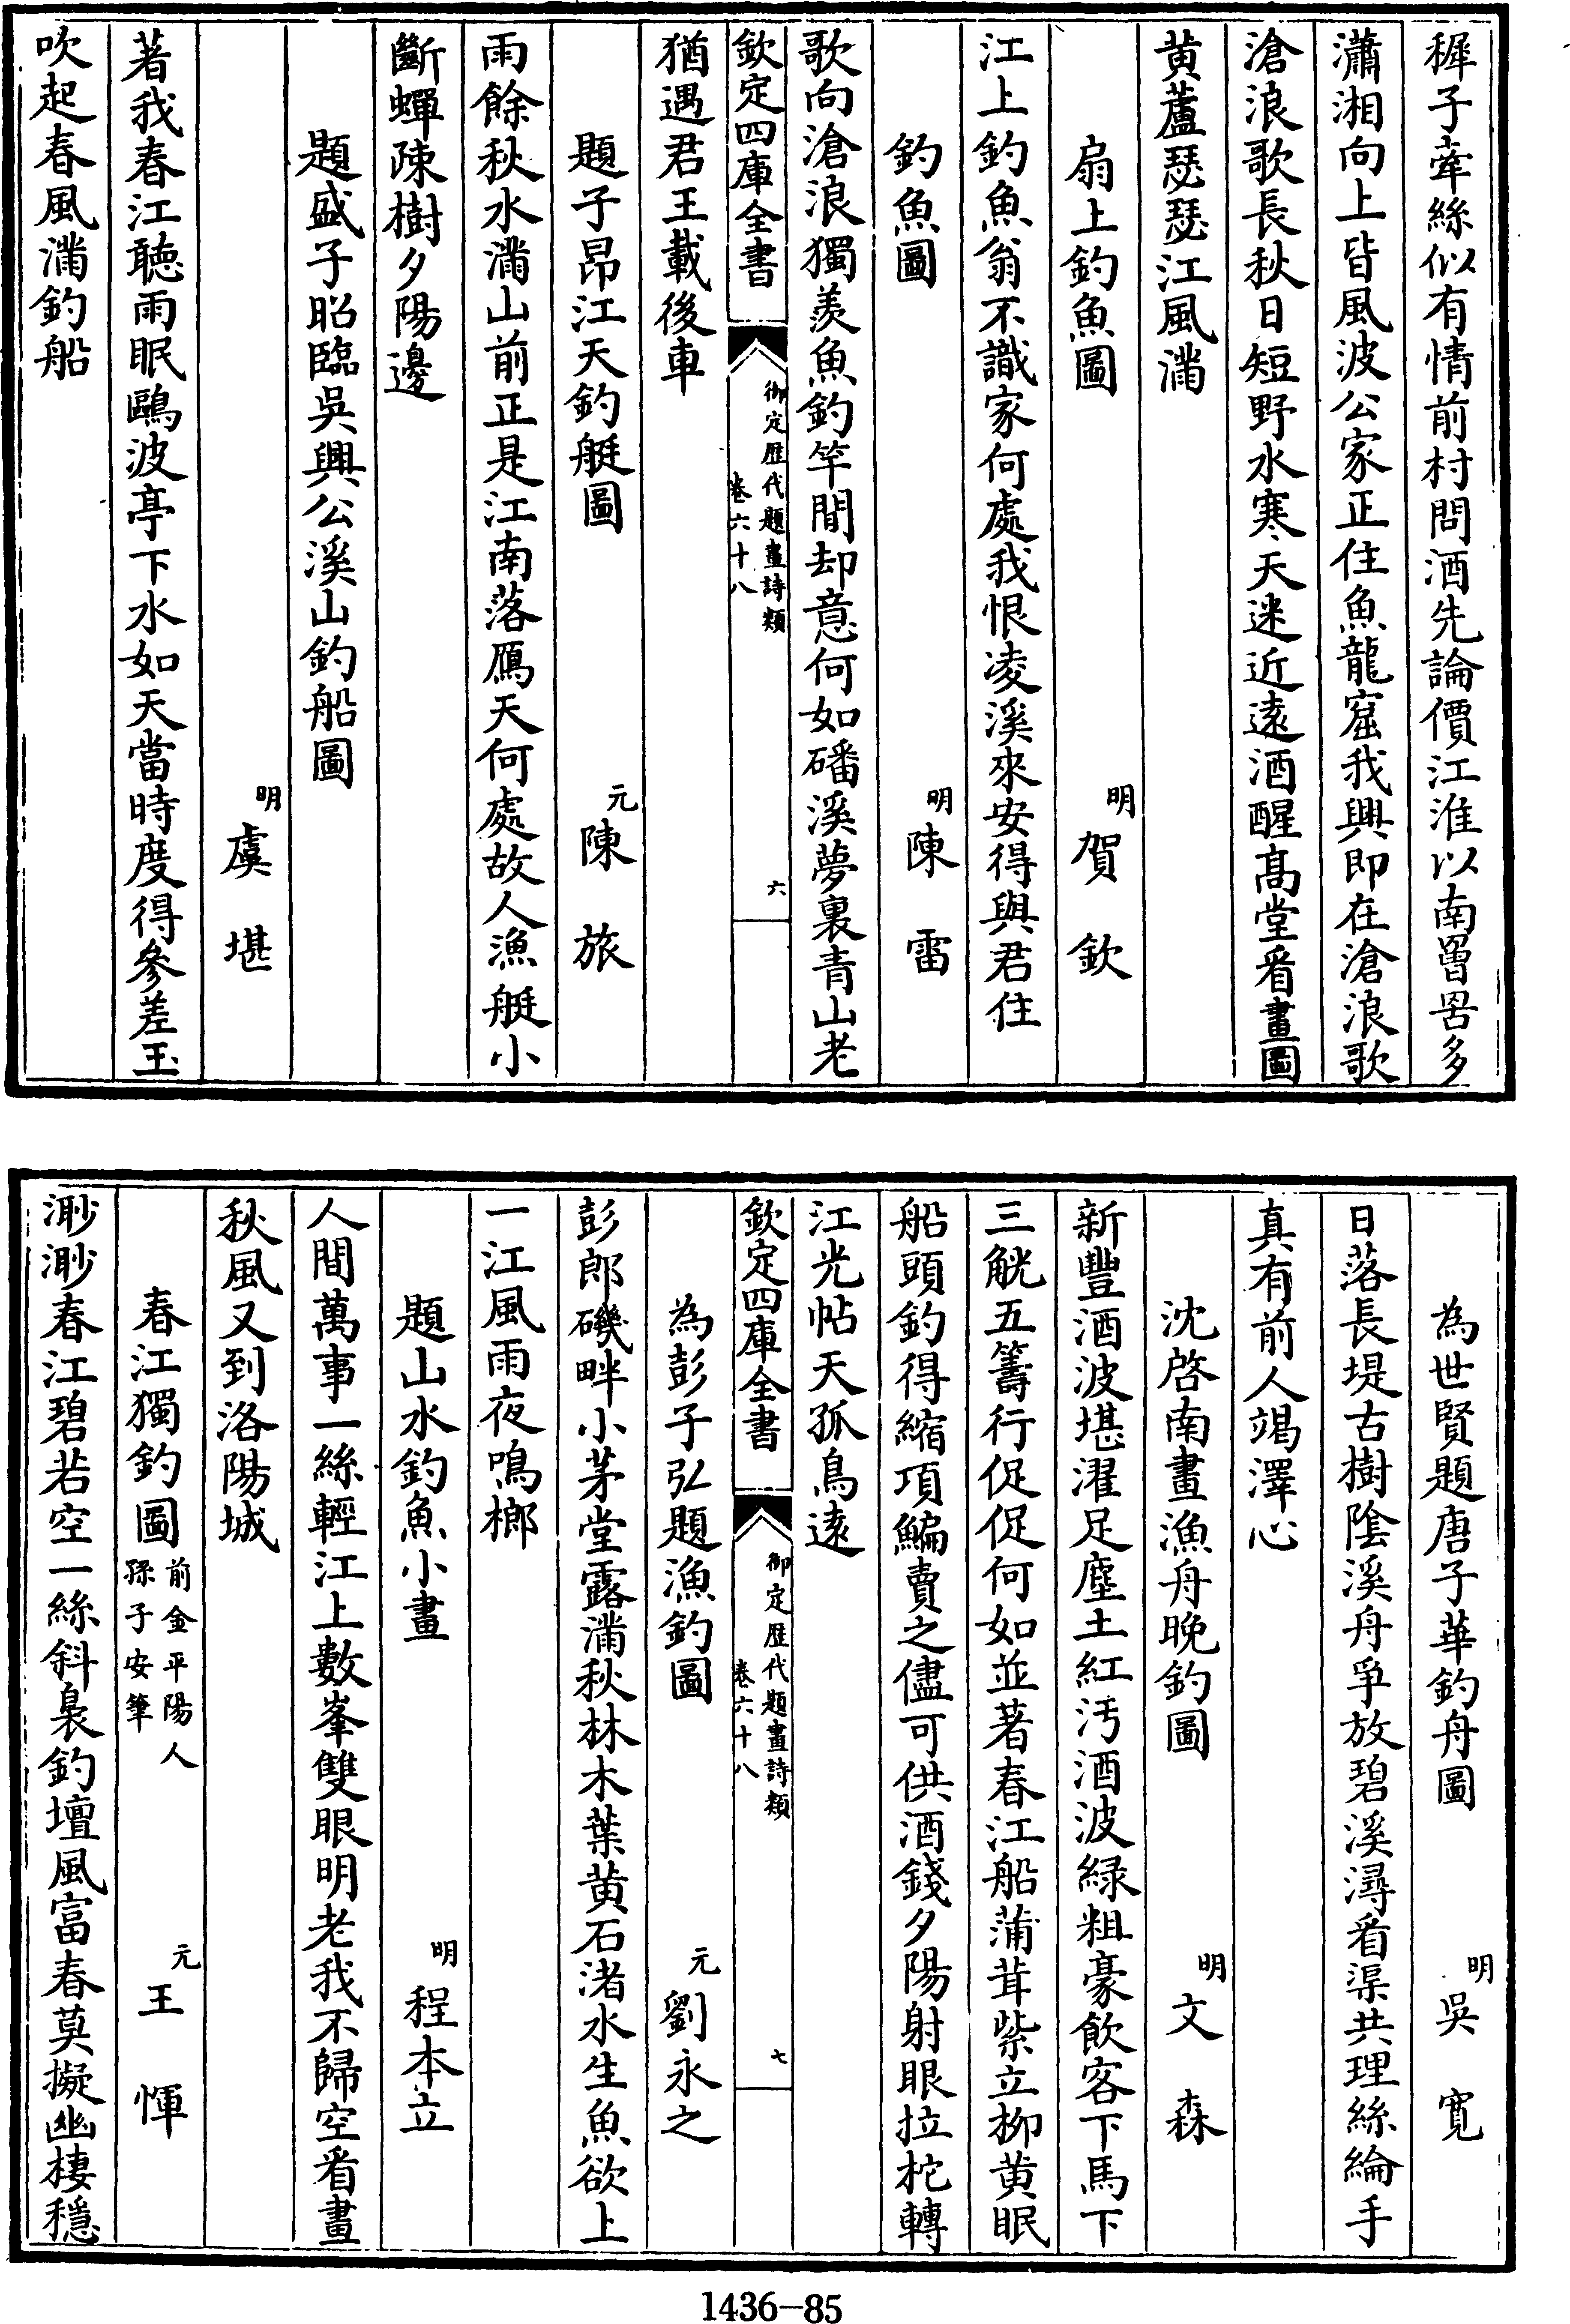 穉子牽絲似有情前村問酒先論價江淮以南罾罟多
瀟湘向上皆風波公家正住魚龍窟我興即在滄浪歌
滄浪歌長秋日短野水寒天迷近遠酒醒高堂看畫圖
黄蘆瑟瑟江風滿
扇上釣魚圖
明賀欽
江上釣魚翁不識家何處我恨凌溪來安得與君住
釣魚圖
明陳雷
歌向滄浪獨羨魚釣竿閒却意何如磻溪夢裏青山老
欽定四庫全書
御定歷代題畫詩類
卷六十八
六
猶遇君王載後車
題子昂江天釣艇圖
元陳旅
雨餘秋水滿山前正是江南落鴈天何處故人漁艇小
斷蟬疎樹夕陽邊
題盛子昭臨吳興公溪山釣船圖
明虞堪
著我春江聽雨眠鷗波亭下水如天當時度得參差玉
吹起春風滿釣船
為世賢題唐子華釣舟圖
明吳寛
日落長堤古樹陰溪舟爭放碧溪潯看渠共理絲綸手
真有前人竭澤心
沈啓南畫漁舟晚釣圖
明文森
新豐酒波堪濯足塵土紅汚酒波緑粗豪飲客下馬下
三觥五籌行促促何如並著春江船蒲茸紫立柳黄眠
船頭釣得縮項鯿賣之儘可供酒錢夕陽射眼拉柁轉
江光帖天孤鳥遠
欽定四庫全書
御定歷代題畫詩類
卷六十八
七
為彭子弘題漁釣圖
元劉永之
彭郎磯畔小茅堂露滿秋林木葉黄石渚水生魚欲上
一江風雨夜鳴榔
題山水釣魚小畫
明程本立
人間萬事一絲輕江上數峯雙眼明老我不歸空看畫
秋風又到洛陽城
春江獨釣圖
前金平陽人
孫子安筆
元王惲
渺渺春江碧若空一絲斜裊釣壇風富春莫擬幽棲穩
1436-85